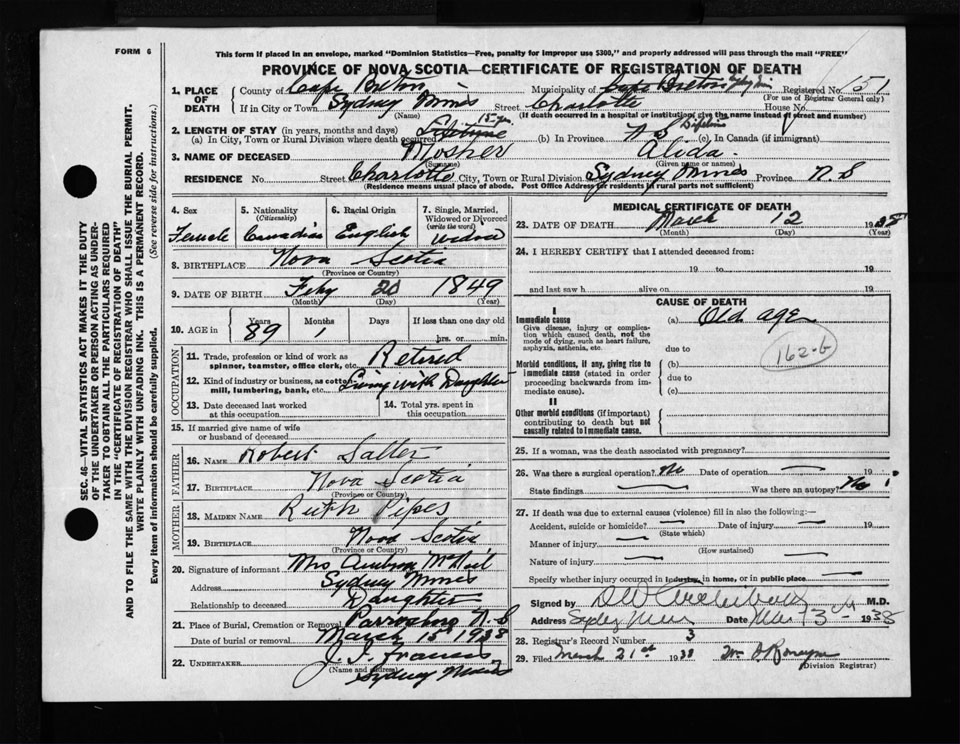 FORM 6
This form if placed in an envelope, marked "Dominion Statistics—Free, penalty for improper use $300," and properly addressed will pass through the mail "FREE"
PROVINCE OF NOVA SCOTIA—CERTIFICATE OF REGISTRATION OF DEATH
SEC. 46—VITAL STATISTICS ACT MAKES IT THE DUTY
OF THE UNDERTAKER OR PERSON ACTING AS UNDER-
TAKER TO OBTAIN ALL THE PARTICULARS REQUIRED
IN THE "CERTIFICATE OF REGISTRATION OF DEATH"
AND TO FILE THE SAME WITH THE DIVISION REGISTRAR WHO SHALL ISSUE THE BURIAL PERMIT.
WRITE PLAINLY WITH UNFADING INK. THIS IS A PERMANENT RECORD.
Every item of information should be carefully supplied. (See reverse side for instructions.)
1. PLACE OF DEATH
County of Cape Breton Municipality of Cape Breton Registered No. 51
(For use of Registrar General only)
If in City or Town Sydney Mines Street Charlotte House No.
(Name) (If death occurred in a hospital or institution, give the name instead of street and number)
2. LENGTH OF STAY (in years, months and days)
(a) In City, Town or Rural Division where death occurred 15 yrs. (b) In Province N S (c) In Canada (if immigrant)
3. NAME OF DECEASED Mosher Alida
(Surname) (Given name or names)
RESIDENCE No. Street Charlotte City, Town or Rural Division Sydney Mines Province N. S
(Residence means usual place of abode. Post Office Address for residents in rural parts not sufficient)
4. Sex Female
5. Nationality (Citizenship) Canadian
6. Racial Origin English
7. Single, Married, Widowed or Divorced (write the word) Widow
8. BIRTHPLACE Nova Scotia
(Province or Country)
9. DATE OF BIRTH Feby 20 1849
(Month) (Day) (Year)
10. AGE in Years 89 Months 1 Days If less than one day old hrs. or min.
OCCUPATION
11. Trade, profession or kind of work as spinner, teamster, office clerk, etc. Retired
12. Kind of industry or business, as cotton mill, lumbering, bank, etc. Living with Daughter
13. Date deceased last worked at this occupation
14. Total yrs. spent in this occupation
15. If married give name of wife or husband of deceased
FATHER
16. NAME Robert Salter
17. BIRTHPLACE Nova Scotia
(Province or Country)
MOTHER
18. MAIDEN NAME Ruth Pipes
19. BIRTHPLACE Nova Scotia
(Province or Country)
20. Signature of informant Mrs McNeil
Address Sydney Mines
Relationship to deceased Daughter
21. Place of Burial, Cremation or Removal Parrsboro N. S
Date of burial or removal March 15 1938
22. UNDERTAKER J. J. Francis
(Name and address) Sydney Mines
MEDICAL CERTIFICATE OF DEATH
23. DATE OF DEATH March 12 1938
(Month) (Day) (Year)
24. I HEREBY CERTIFY that I attended deceased from:
19 to 19
and last saw h alive on 19
CAUSE OF DEATH
I
Immediate cause
Give disease, injury or complication which caused death, not the mode of dying, such as heart failure, asphyxia, asthenia, etc.
(a) Old age
162-b
due to
Morbid conditions, if any, giving rise to immediate cause (stated in order proceeding backwards from immediate cause).
(b)
due to
(c)
II
Other morbid conditions (if important) contributing to death but not causally related to immediate cause.
25. If a woman, was the death associated with pregnancy?
26. Was there a surgical operation? No Date of operation — 19
State findings — Was there an autopsy? No
27. If death was due to external causes (violence) fill in also the following:—
Accident, suicide or homicide? — Date of injury — 19
(State which)
Manner of injury — —
(How sustained)
Nature of injury —
Specify whether injury occurred in industry, in home, or in public place —
Signed by M.D.
Address Sydney Mines Date 1938
28. Registrar's Record Number 3
29. Filed March 21st 1938
(Division Registrar)